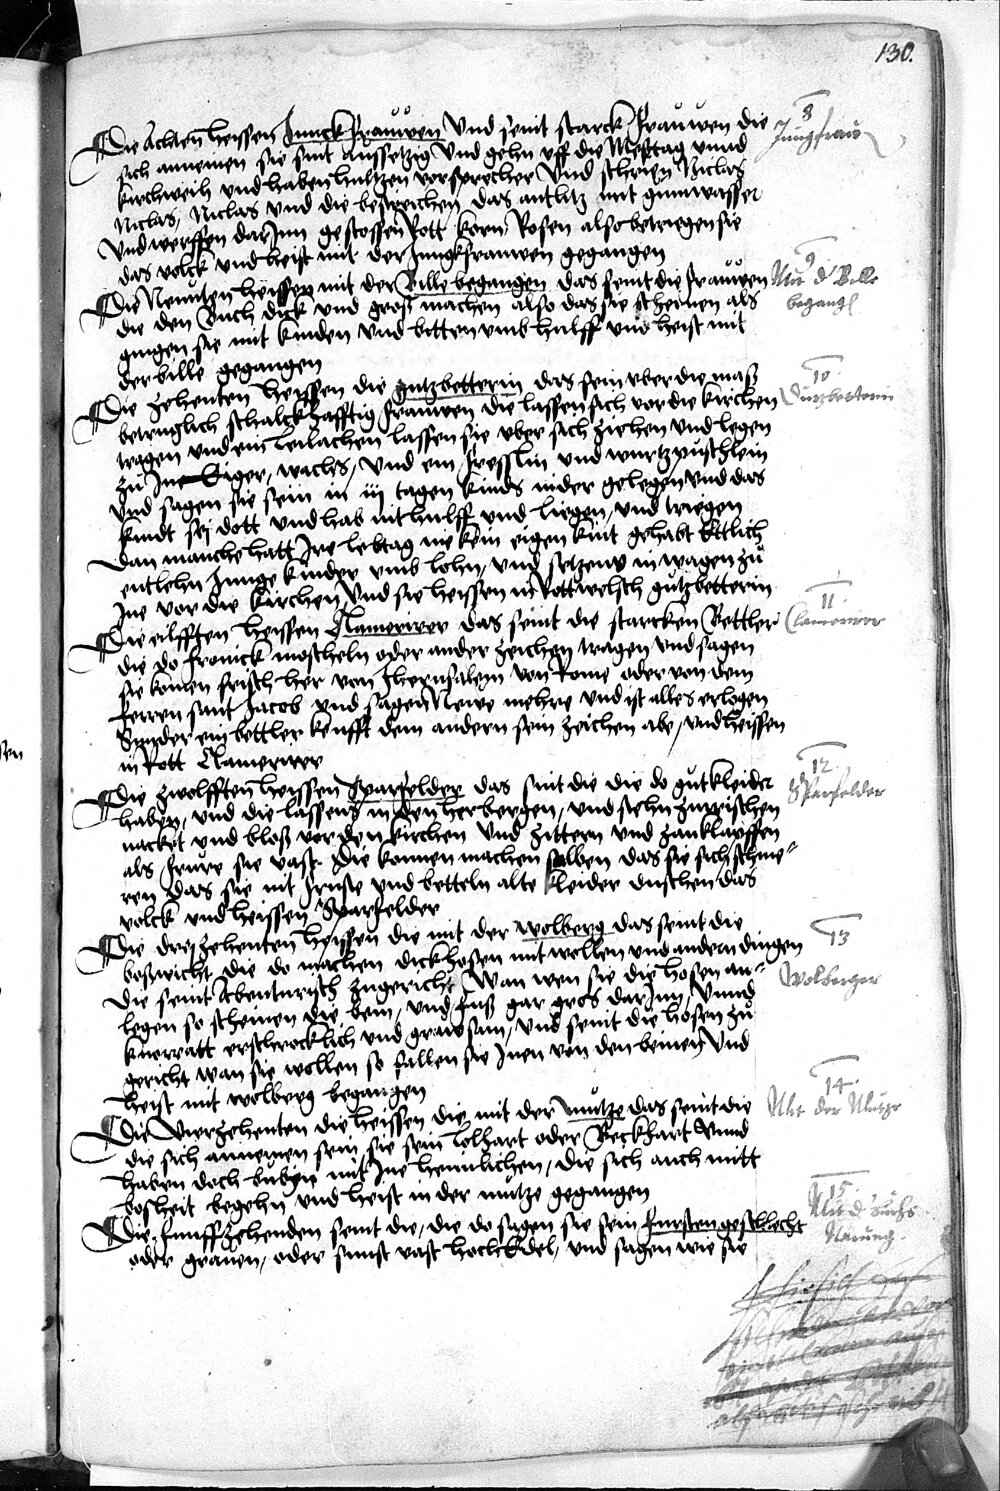 130.
Die Achten heissen Junckfrauwen Und seint starck frauwen die
sich annemen sie sint aussetzig Und gehn uff die Meßtag unnd
Kirchweih und haben hultzen vorsprecher Und schrien Niclas
Niclas, Niclas und die bestreichen das antlitz mit gumwasser
Und werffen darInn gestossen Rott korn Rosen also betriegen sie
das volck und heist mit der Jungkfrauwen gegangen
Die Neunten heissen mit der Bille begangen das seint die frauwen
die den Buch dick und groß machen also das sie scheinen als
gingen sie mit kinden und bitten umb hulff und heist mit
der bille gegangen
Die Zehenten heissen die gutzbetterin das sein uber die maß
betruglich schalckhafftig frauwen die lassen sich vor die Kirchen
tragen und ein leilachen lassen sie uber sich ziehen und legen
zu Ine Eiger, wachs, Und ein fresslin und wurtzpuschlein
Und sagen sie sein in iij tagen kinds nider gelegen und das
kindt sej dott und hab nit hulff und liegen, und triegen
Dan manche hatt Ire lebtag nie kein eigen kint gehabt Ettlich
entlehn Junge kinder umb lohn, und setzens in wagen zu
Ine vor die kirchen Und sie heissen in Rottwelsch gutzbetterin
Die eilfften heissen Clamerirer das seint die starcken Bettler
die do fronick moscheln oder ander zeichen tragen und sagen
sie komen frisch her von Jherusalem von Rome oder von dem
ferren sant Jacob und sagen Newe mehre und ist alles erlogen
Sunder ein bettler keufft dem andern sein zeichen abe, und heissen
in Rott Clamerirer
Die zwolfften heissen Sparfelder das sint die die do gut kleider
haben, und die lassens in den herbergen, und stehn zwischen
nacket und bloß vor den kirchen Und zittern und zanklapffen
als frure sie vast Die konnen machen salben das sie sich schmie"
ren das sie nit fruse und betteln alte kleider duschen das
volck und heissen Sparfelder
Die dreyzehenten heissen die mit der wolberg das seint die
boßwicht die do machen dick hosen mit wollen und andern dingen
Die seint Abenturisch zugericht Wan wen sie die hosen an"
legen so scheinen die bein, und fuß gar gros darInn, Unnd
knorratt erschrocklich und grausam, und seint die hosen zu
gericht wan sie wollen so fallen sie Inen von den beinen Und
heist mit wolberg begangen
Die Vierzehenten die heissen die mit der mutze das seint die
die sich annemen sein sie sein Lolhart oder Beckhart Unnd
haben doch buben mit Ine heimlichen, die sich auch mitt
bosheit begehn und heist in der mutze gegangen
Die funffzehenden seint die, die do sagen sie sein furstengeschlecht
oder graven, oder sunst vast hoch Edel, und sagen wie sie
8
Jungfraue
9
Mit d Bille
begangen
10
Gutzbetterin
11
Clamerirer
12
Sparfelder
13
Wolberger
14
Mit der Mutze
15
Narung.